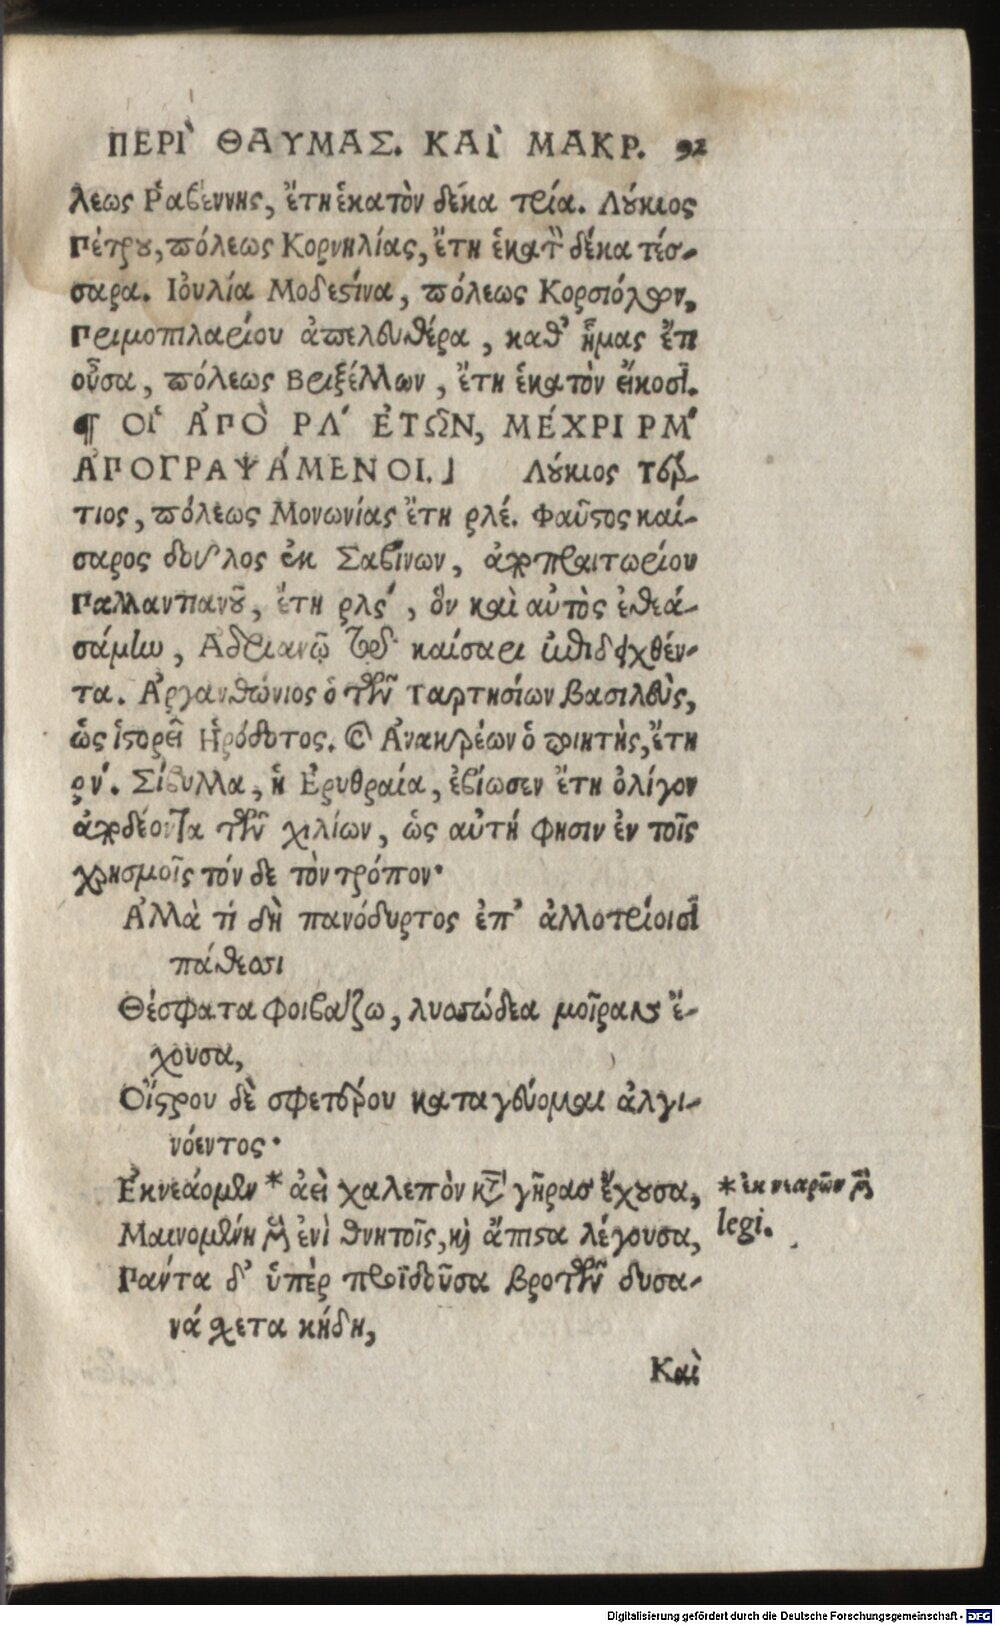 ΠΕΡΙ ΘΑΥΜΑΣ. ΚΑΙ ΜΑΚΡ. 92
λεως Ῥαβέννης, ἔτη ἑκατὸν δέκα τρία. Λούκιος
Πέτρου, πόλεως Κορνηλίας, ἔτη ἑκατὸν δέκα τέσ-
σαρα. Ἰουλία Μοδεστίνα, πόλεως Κορσιόλων,
Πριμοπιλαρίου ἀπελευθέρα, καθ' ἡμᾶς ἔτι
οὖσα, πόλεως Βριξέλλων, ἔτη ἑκατὸν εἴκοσι.
¶ ΟΙ ἈΠΟ ΡΛ' ἘΤΩ͂Ν, ΜΈΧΡΙ ΡΜ'
ἈΠΟΓΡΑΨΆΜΕΝΟΙ.⌋ Λούκιος Τέρ-
τιος, πόλεως Μονωνίας ἔτη ρλέ. Φαῦστος καί-
σαρος δοῦλος ἐκ Σαβίνων, ἀπὸ πραιτωρίου
Παλλαντιανοῦ, ἔτη ρλς', ὃν καὶ αὐτὸς ἐθεα-
σάμην, Ἀδριανῷ τῷ καίσαρι ἐπιδειχθέν-
τα. Ἀργανθώνιος ὁ τῶν Ταρτησίων βασιλεὺς,
ὡς ἱστορεῖ Ἡρόδοτος. Ἀνακρέων ὁ ποιητὴς, ἔτη
ρν'. Σίβυλλα, ἡ Ἐρυθραία, ἐβίωσεν ἔτη ὀλίγον
ἀποδέοντα τῶν χιλίων, ὡς αὐτή φησιν ἐν τοῖς
χρησμοῖς τόν δε τὸν τρόπον·
Ἀλλὰ τί δὴ πανόδυρτος ἐπ' ἀλλοτρίοισι
πάθεσι
Θέσφατα φοιβάζω, λυσσώδεα μοῖραν ἔ-
χουσα,
Οἴστρου δὲ σφετέρου καταγεύομαι ἀλγι-
νόεντος·
Ἐκνεάομεν * ἀεὶ χαλεπὸν κατὰ γῆρας ἔχουσα, * ἐκ νεαρῶν μὲν
Μαινομένη μὲν ἐνὶ θνητοῖς, καὶ ἄπιστα λέγουσα, legi.
Πάντα δ' ὑπὲρ προϊδοῦσα βροτῶν δυσα-
νάχετα κήδη,
Καὶ
Digitalisierung gefördert durch die Deutsche Forschungsgemeinschaft - DFG